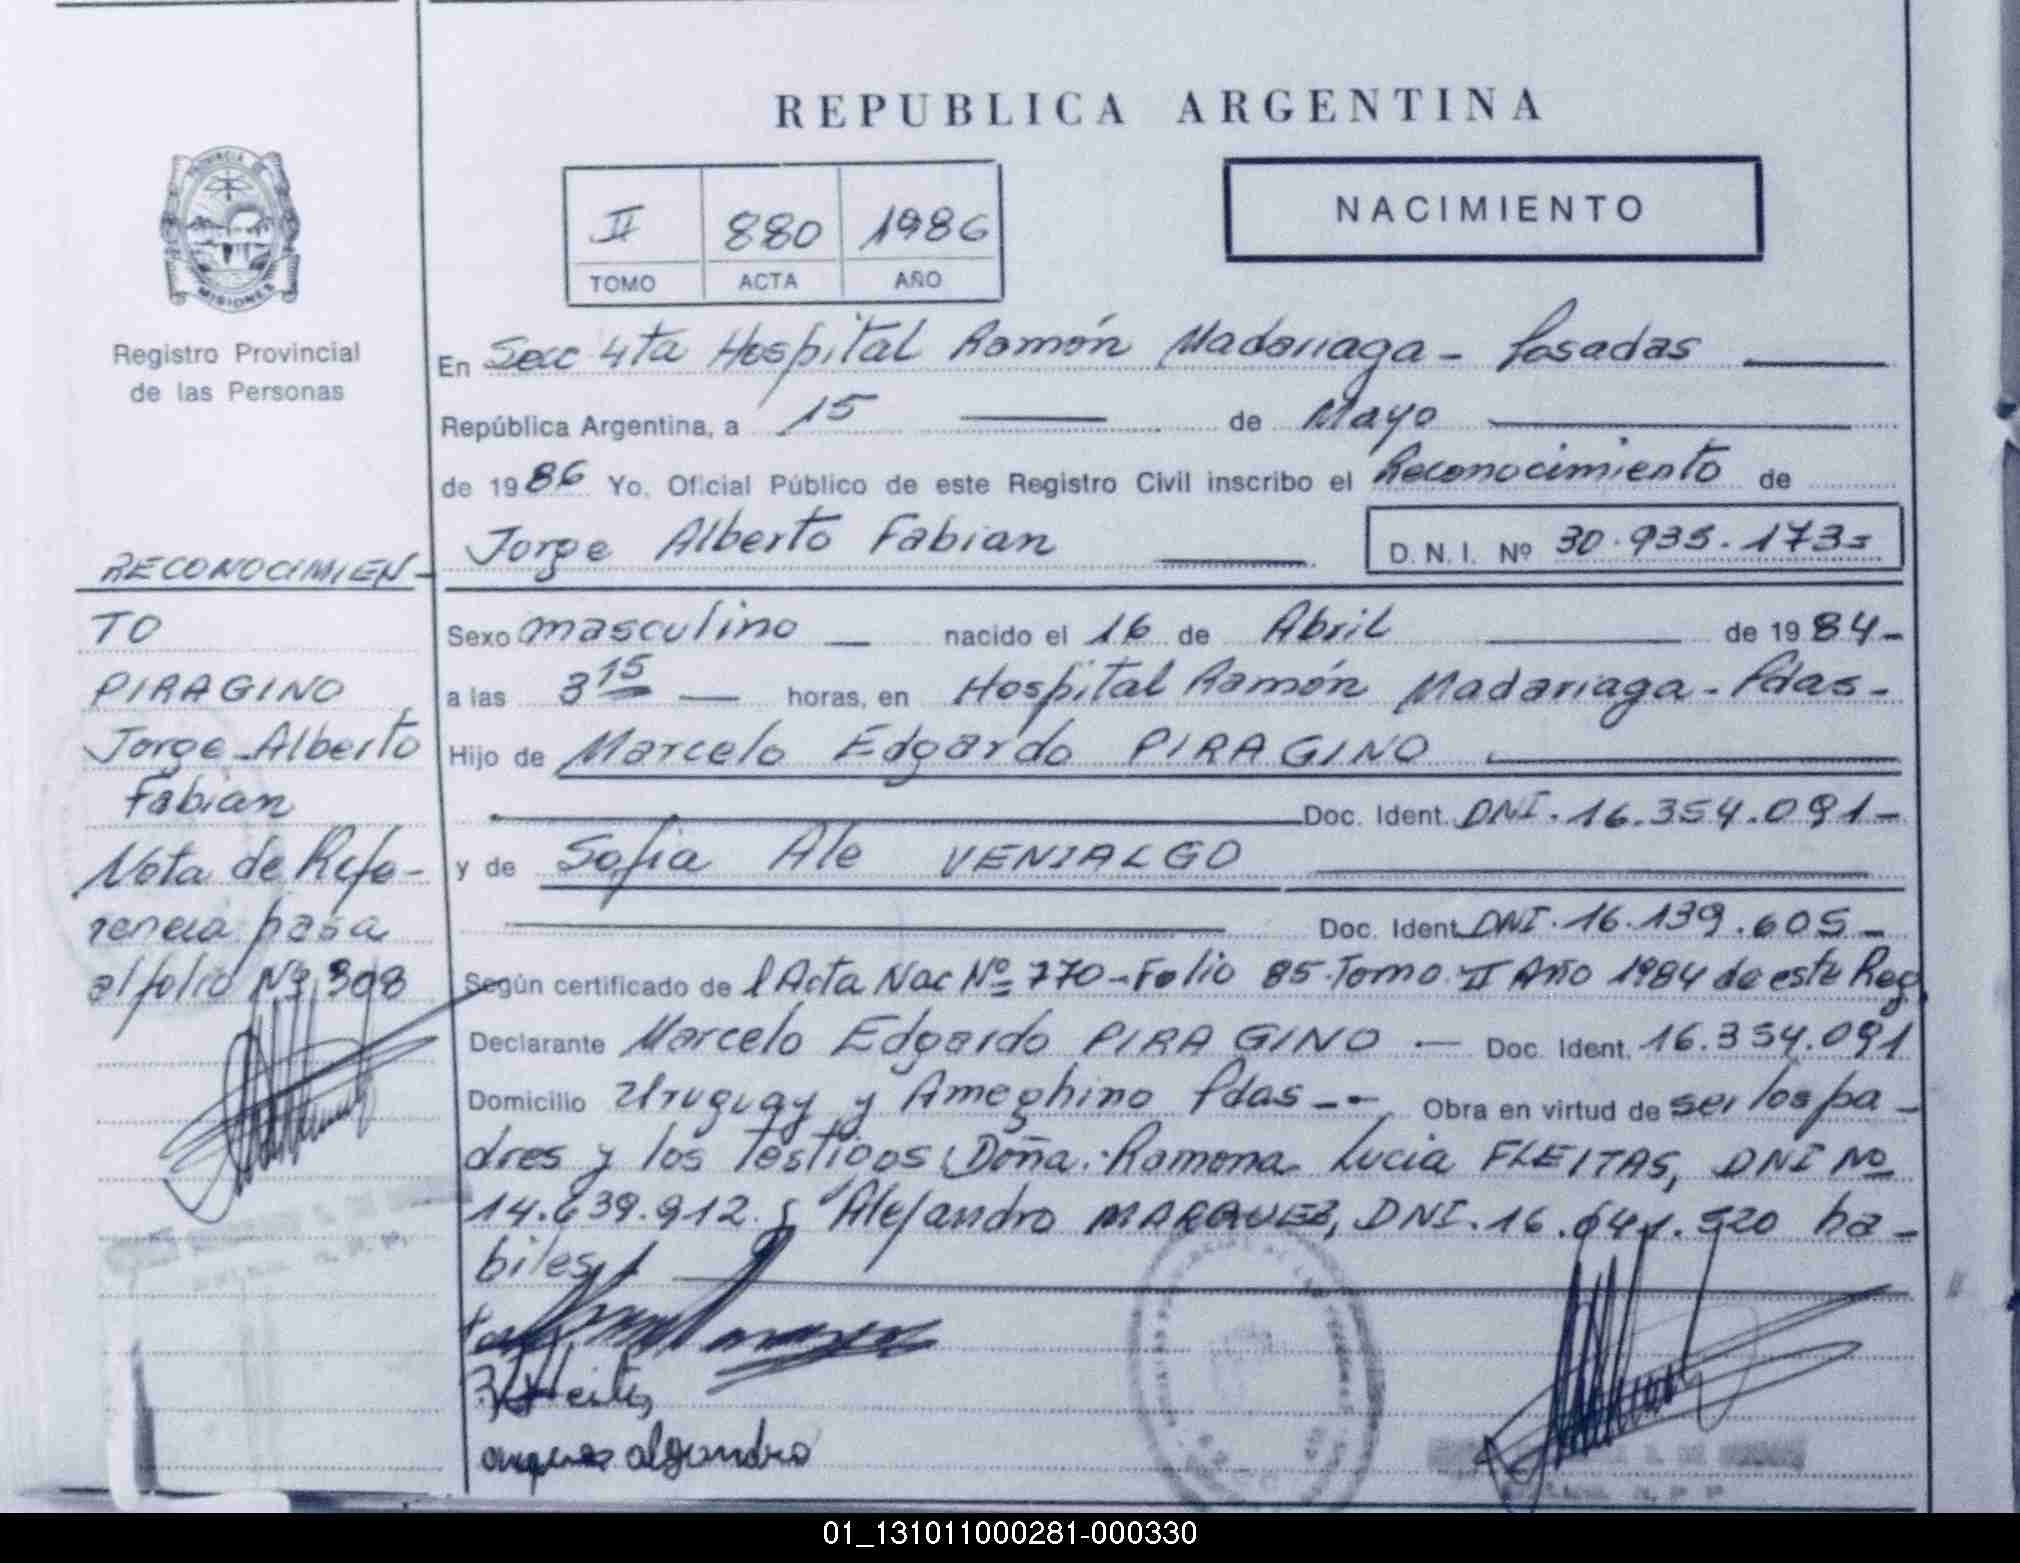 REPUBLICA ARGENTINA
PROVINCIA
MISIONES
Registro Provincial
de las Personas
II 880 1986
TOMO ACTA AÑO
NACIMIENTO
En Secc 4ta Hospital Ramón Madariaga - Posadas
República Argentina, a 15 de Mayo
de 1986 Yo, Oficial Público de este Registro Civil inscribo el Reconocimiento de
Jorge Alberto Fabian D.N.I. Nº 30.935.173=
Sexo masculino nacido el 16 de Abril de 1984-
a las 3 15 horas, en Hospital Ramón Madariaga - Pdas-
Hijo de Marcelo Edgardo PIRAGINO
Doc. Ident. DNI. 16.354.091-
y de Sofia Ale VENIALGO
Doc. Ident. DNI. 16.139.605-
Según certificado de l Acta Nac Nº 770-Folio 85-Tomo II Año 1984 de este Reg.
Declarante Marcelo Edgardo PIRAGINO - Doc. Ident. 16.354.091
Domicilio Uruguay y Ameghino Pdas-- Obra en virtud de ser los pa-
dres y los testigos Doña. Ramona Lucia FLEITAS, DNI Nº
14.639.912. y Alejandro MARQUEZ, DNI. 16.641.520 ha-
biles
alejandro
RECONOCIMIEN-
TO
PIRAGINO
Jorge Alberto
Fabian
Nota de Refe-
rencia pasa
al folio Nº 308
01_131011000281-000330